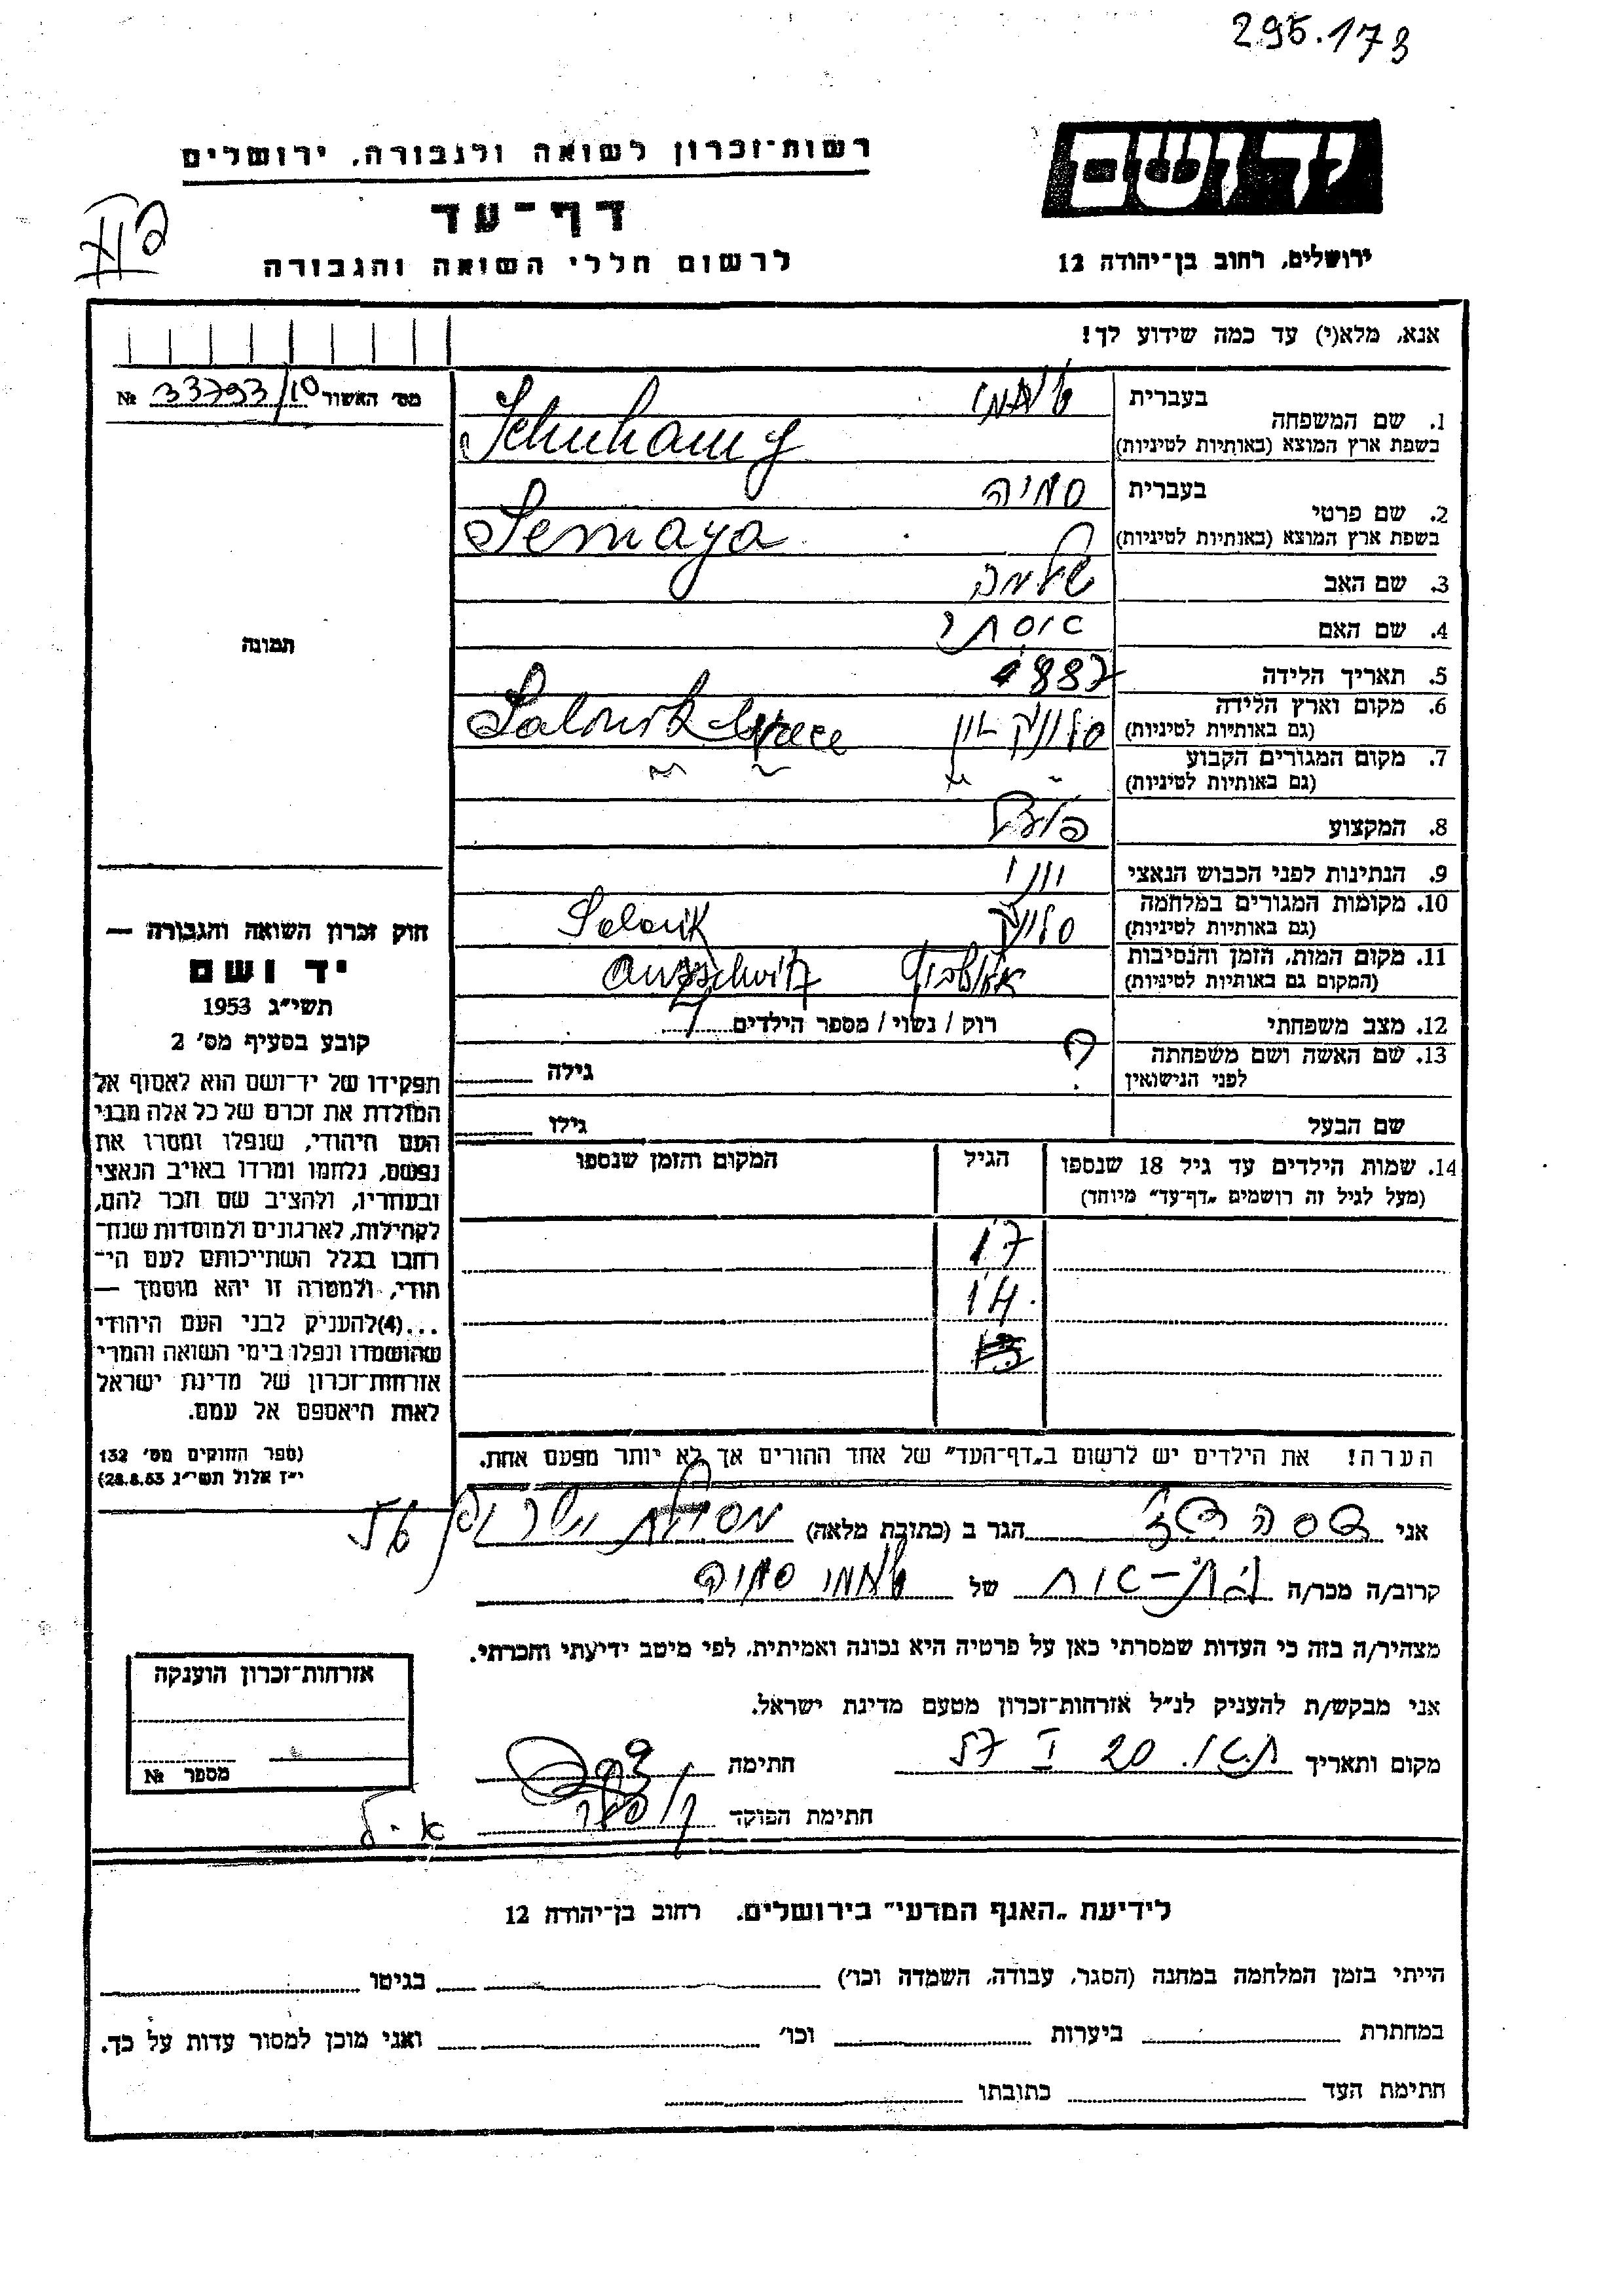 295.173
יד ושם
רשות־זכרון לשואה ולגבורה, ירושלים
דף־עד
לרשום חללי השואה והגבורה
ירושלים, רחוב בן־יהודה 12
אנא, מלא(י) עד כמה שידוע לך!
מס' האשור 33793/10 №
תמונה
1. שם המשפחה
בעברית
בשפת ארץ המוצא (באותיות לטיניות) Schuhamy
2. שם פרטי
בעברית סמיה
בשפת ארץ המוצא (באותיות לטיניות) Semaya
3. שם האב שלמה
4. שם האם
5. תאריך הלידה 1887
6. מקום וארץ הלידה
(גם באותיות לטיניות) סלוניק יון Salonik Greece
7. מקום המגורים הקבוע
(גם באותיות לטיניות) " " " "
8. המקצוע פועל
9. הנתינות לפני הכבוש הנאצי יוני
10. מקומות המגורים במלחמה
(גם באותיות לטיניות) סלוניק Salonik
11. מקום המות, הזמן והנסיבות
(המקום גם באותיות לטיניות) אושביץ Ausschwitz
12. מצב משפחתי רוק / נשוי / מספר הילדים
13. שם האשה ושם משפחתה
לפני הנישואין ? גילה
שם הבעל גילו
14. שמות הילדים עד גיל 18 שנספו
(מעל לגיל זה רושמים „דף־עד” מיוחד)
הגיל
המקום והזמן שנספו
17
14
הערה! את הילדים יש לרשום ב„דף־העד” של אחד ההורים אך לא יותר מפעם אחת.
חוק זכרון השואה והגבורה —
יד ושם
תשי״ג 1953
קובע בסעיף מס׳ 2
תפקידו של יד־ושם הוא לאסוף אל
המולדת את זכרם של כל אלה מבני
העם היהודי, שנפלו ומסרו את
נפשם, נלחמו ומרדו באויב הנאצי
ובעוזריו, ולהציב שם וזכר להם,
לקהילות, לארגונים ולמוסדות שנח־
רחבו בגלל השתייכותם לעם הי־
הודי, ולמטרה זו יהא מוסמך —
...(4)להעניק לבני העם היהודי
שהושמדו ונפלו בימי השואה והמרי
אזרחות־זכרון של מדינת ישראל
לאות היאספם אל עמם.
(ספר החוקים מס׳ 132
י״ז אלול תשי״ג 28.8.53)
אני הגר ב (כתובת מלאה)
קרוב/ה מכר/ה בת-אחות של סמיה
מצהיר/ה בזה כי העדות שמסרתי כאן על פרטיה היא נכונה ואמיתית, לפי מיטב ידיעתי והכרתי.
אני מבקש/ת להעניק לנ״ל אזרחות־זכרון מטעם מדינת ישראל.
מקום ותאריך 20 I 57 חתימה
חתימת הפוקד
אזרחות־זכרון הוענקה
מספר №
לידיעת „האגף המדעי” בירושלים, רחוב בן־יהודה 12
הייתי בזמן המלחמה במחנה (הסגר, עבודה, השמדה וכו׳) בגיטו
במחתרת ביערות וכו׳ ואני מוכן למסור עדות על כך.
חתימת העד כתובתו